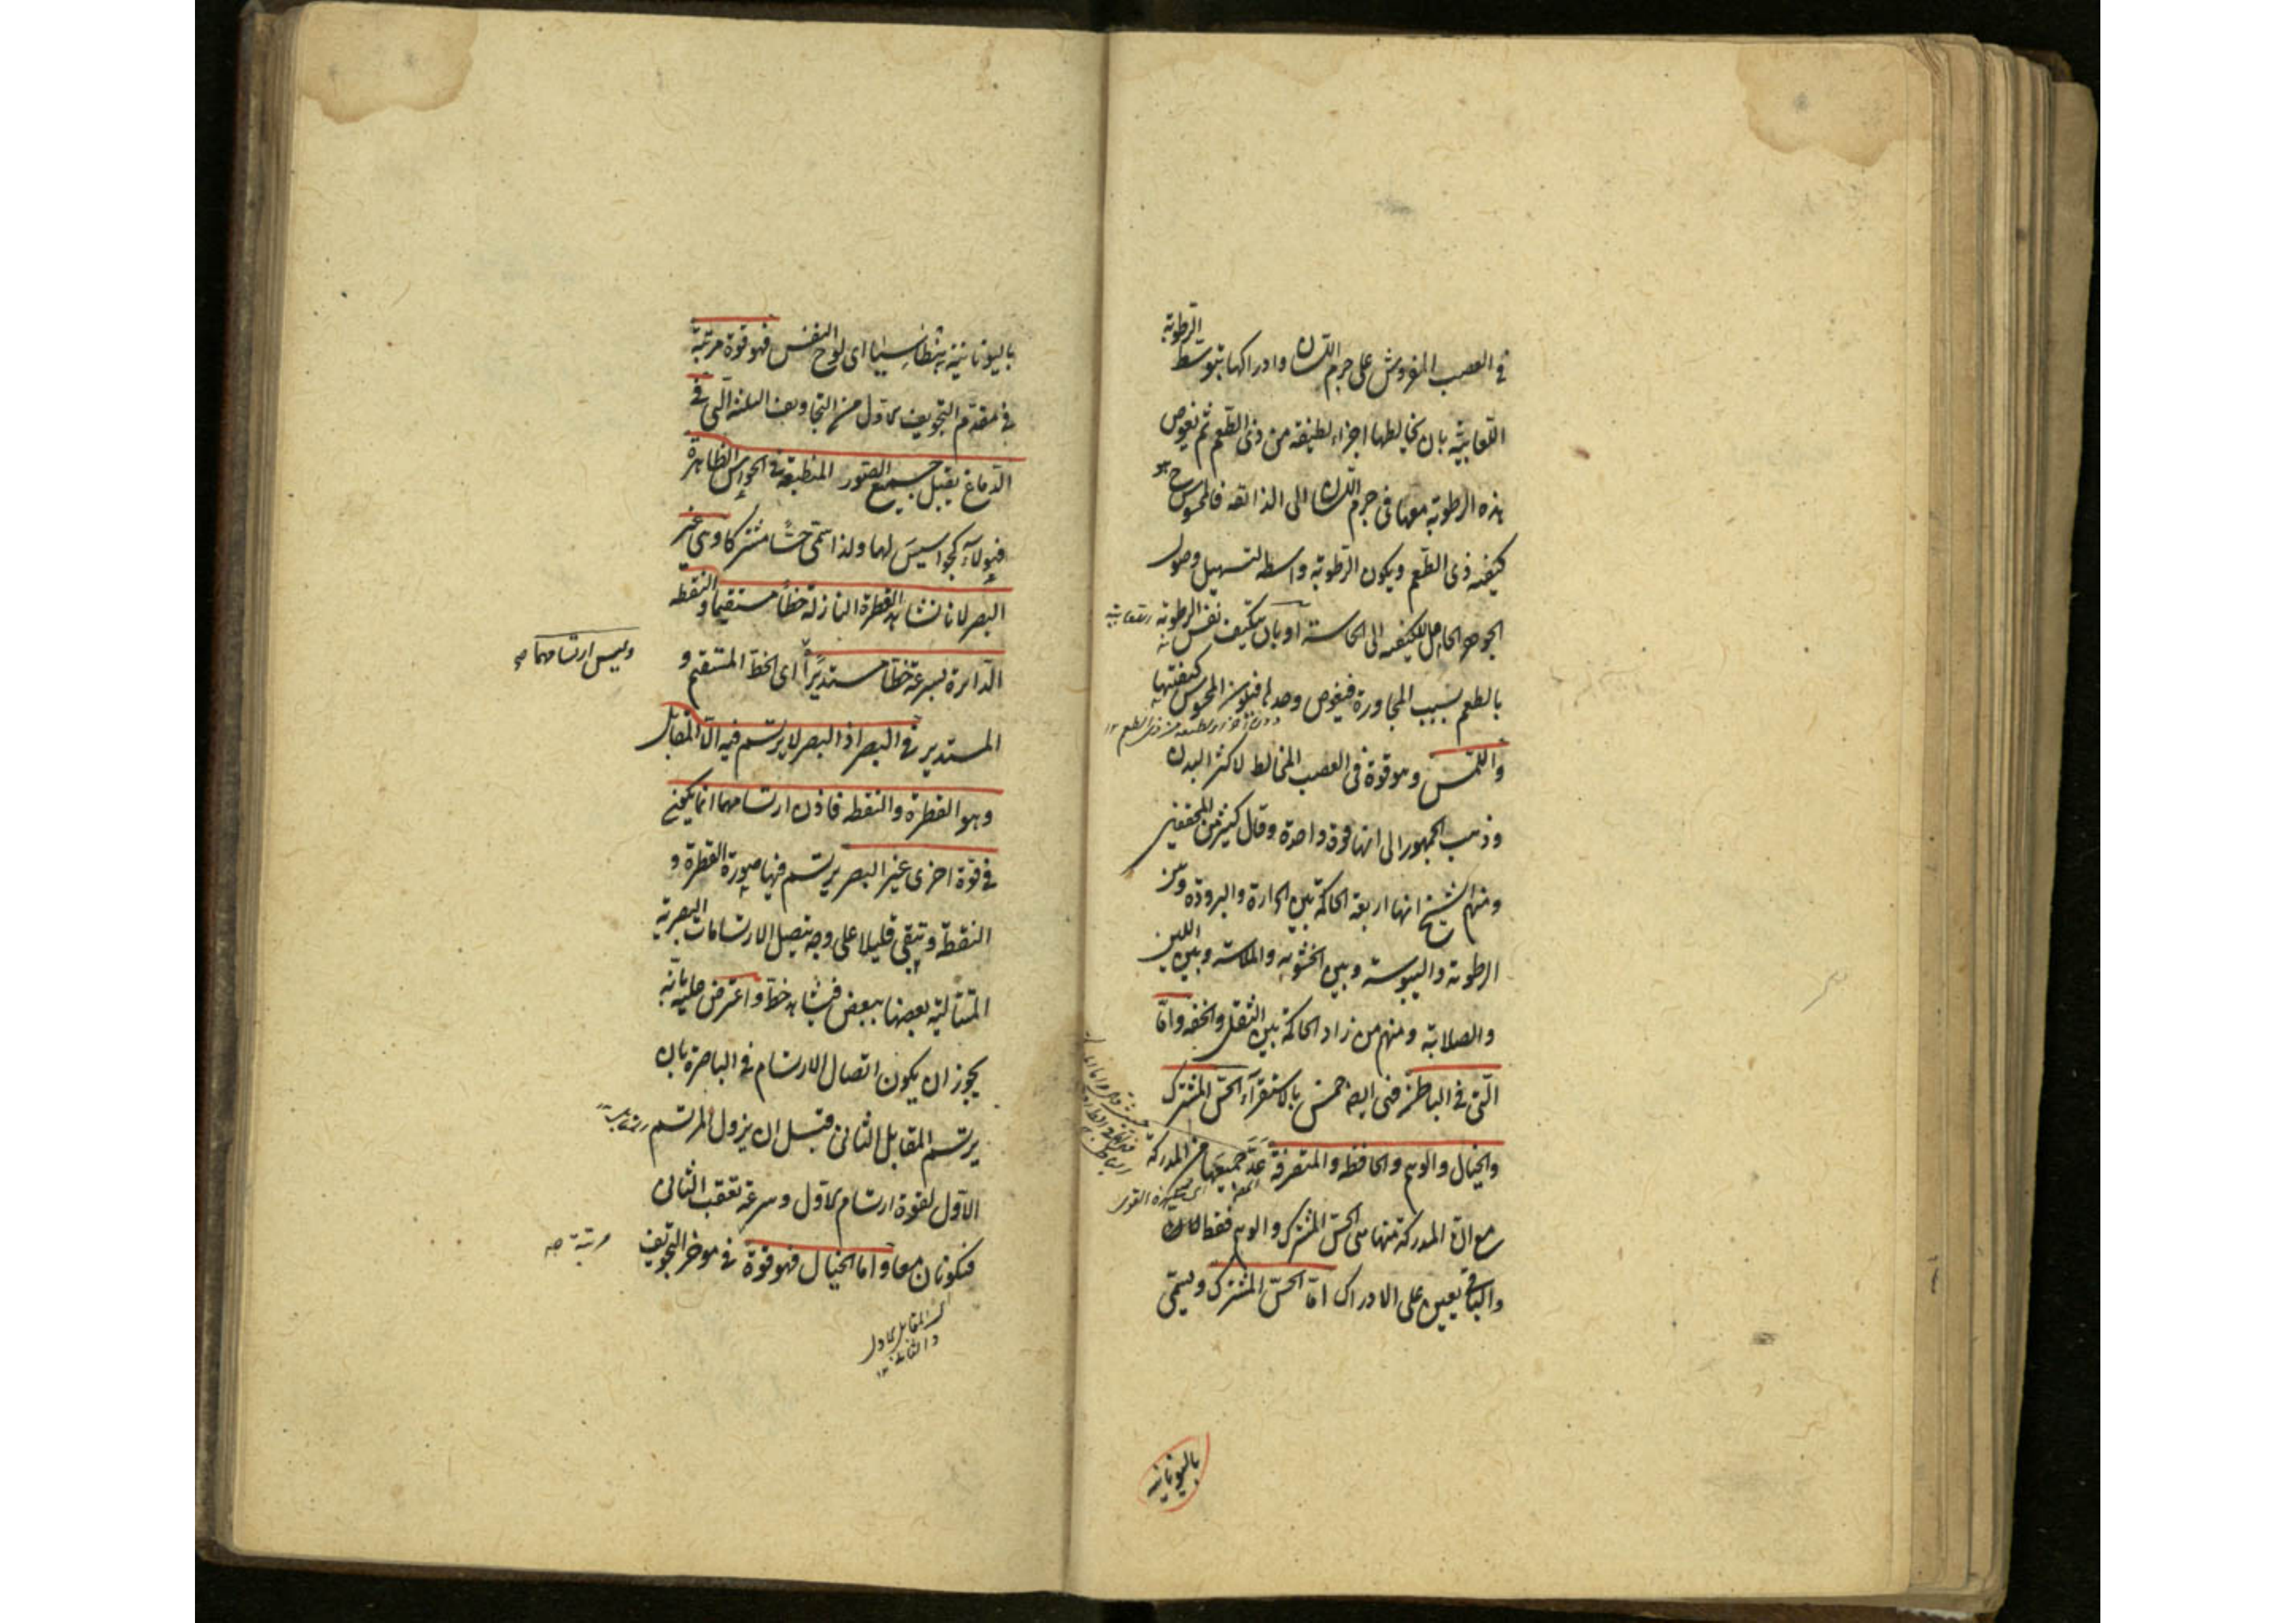 في العصب المفروش على جرم اللسان وادراكها بتوسط الرطوبة
اللعابية بان يخالطها اجزاء لطيفة من ذى الطعم ثم تغوص
هذه الرطوبة معها فى جرم اللسان الى الذائقة فالمحسوس ح هو
كيفية ذى الطعم ويكون الرطوبة واسطة لتسهيل وصول
الجوهر الحامل للكيفية الى الحاسة او بان يتكيف نفس الرطوبة
بالطعم بسبب المجاورة فيغوص وحدها فيكون المحسوس كيفيتها
دون اجزاء لطيفة من ذى الطعم ١٢
واللمس وهو قوة فى العصب المخالط لاكثر البدن
وذهب الجمهور الى انها قوة واحدة وقال كثير من المحققين
ومنهم الشيخ انها اربعة الحاكمة بين الحرارة والبرودة وبين
الرطوبة واليبوسة وبين الخشونة والملاسة وبين اللين
والصلابة ومنهم من زاد الحاكمة بين الثقل والخفة واما
التى فى الباطن فهى ايضا خمس بالاستقراء الحس المشترك
والخيال والوهم والحافظة والمتصرفة عد جميعها من المدركة
مع ان المدركة منها هى الحس المشترك والوهم فقط لان
والباقى يعين على الادراك اما الحس المشترك ويسمى
باليونانية
باليونانية بنطاسيا اى لوح النفس فهو قوة مرتبة
فى مقدم التجويف الاول من التجاويف الثلثة التى فى
الدماغ يقبل جميع الصور المنطبعة فى الحواس الظاهرة
فهؤلاء كجواسيس لها ولذا سمى حسا مشتركا وهى غير
البصر لانا نشاهد القطرة النازلة خطا مستقيما والنقطة
الدائرة بسرعة خطا مستديرا اى الخط المستقيم و
وليس ارتسامهما صح
المستدير فى البصر اذ البصر لا يرتسم فيه الا المقابل
وهو القطرة والنقطة فاذن ارتسامهما انما يكون
فى قوة اخرى غير البصر يرتسم فيها صورة القطرة و
النقطة وتبقى قليلا على وجه تتصل الارتسامات البصرية
المتتالية بعضها ببعض فيشاهد خط واعترض عليه بانه
يجوز ان يكون اتصال الارتسام فى الباصرة بان
يرتسم المقابل الثانى قبل ان يزول المرتسم
الاول لقوة ارتسام الاول وسرعة تعقب الثانى
فيكونان معا واما الخيال فهو قوة فى موخر التجويف
مرتبة صح
المقابل الاول